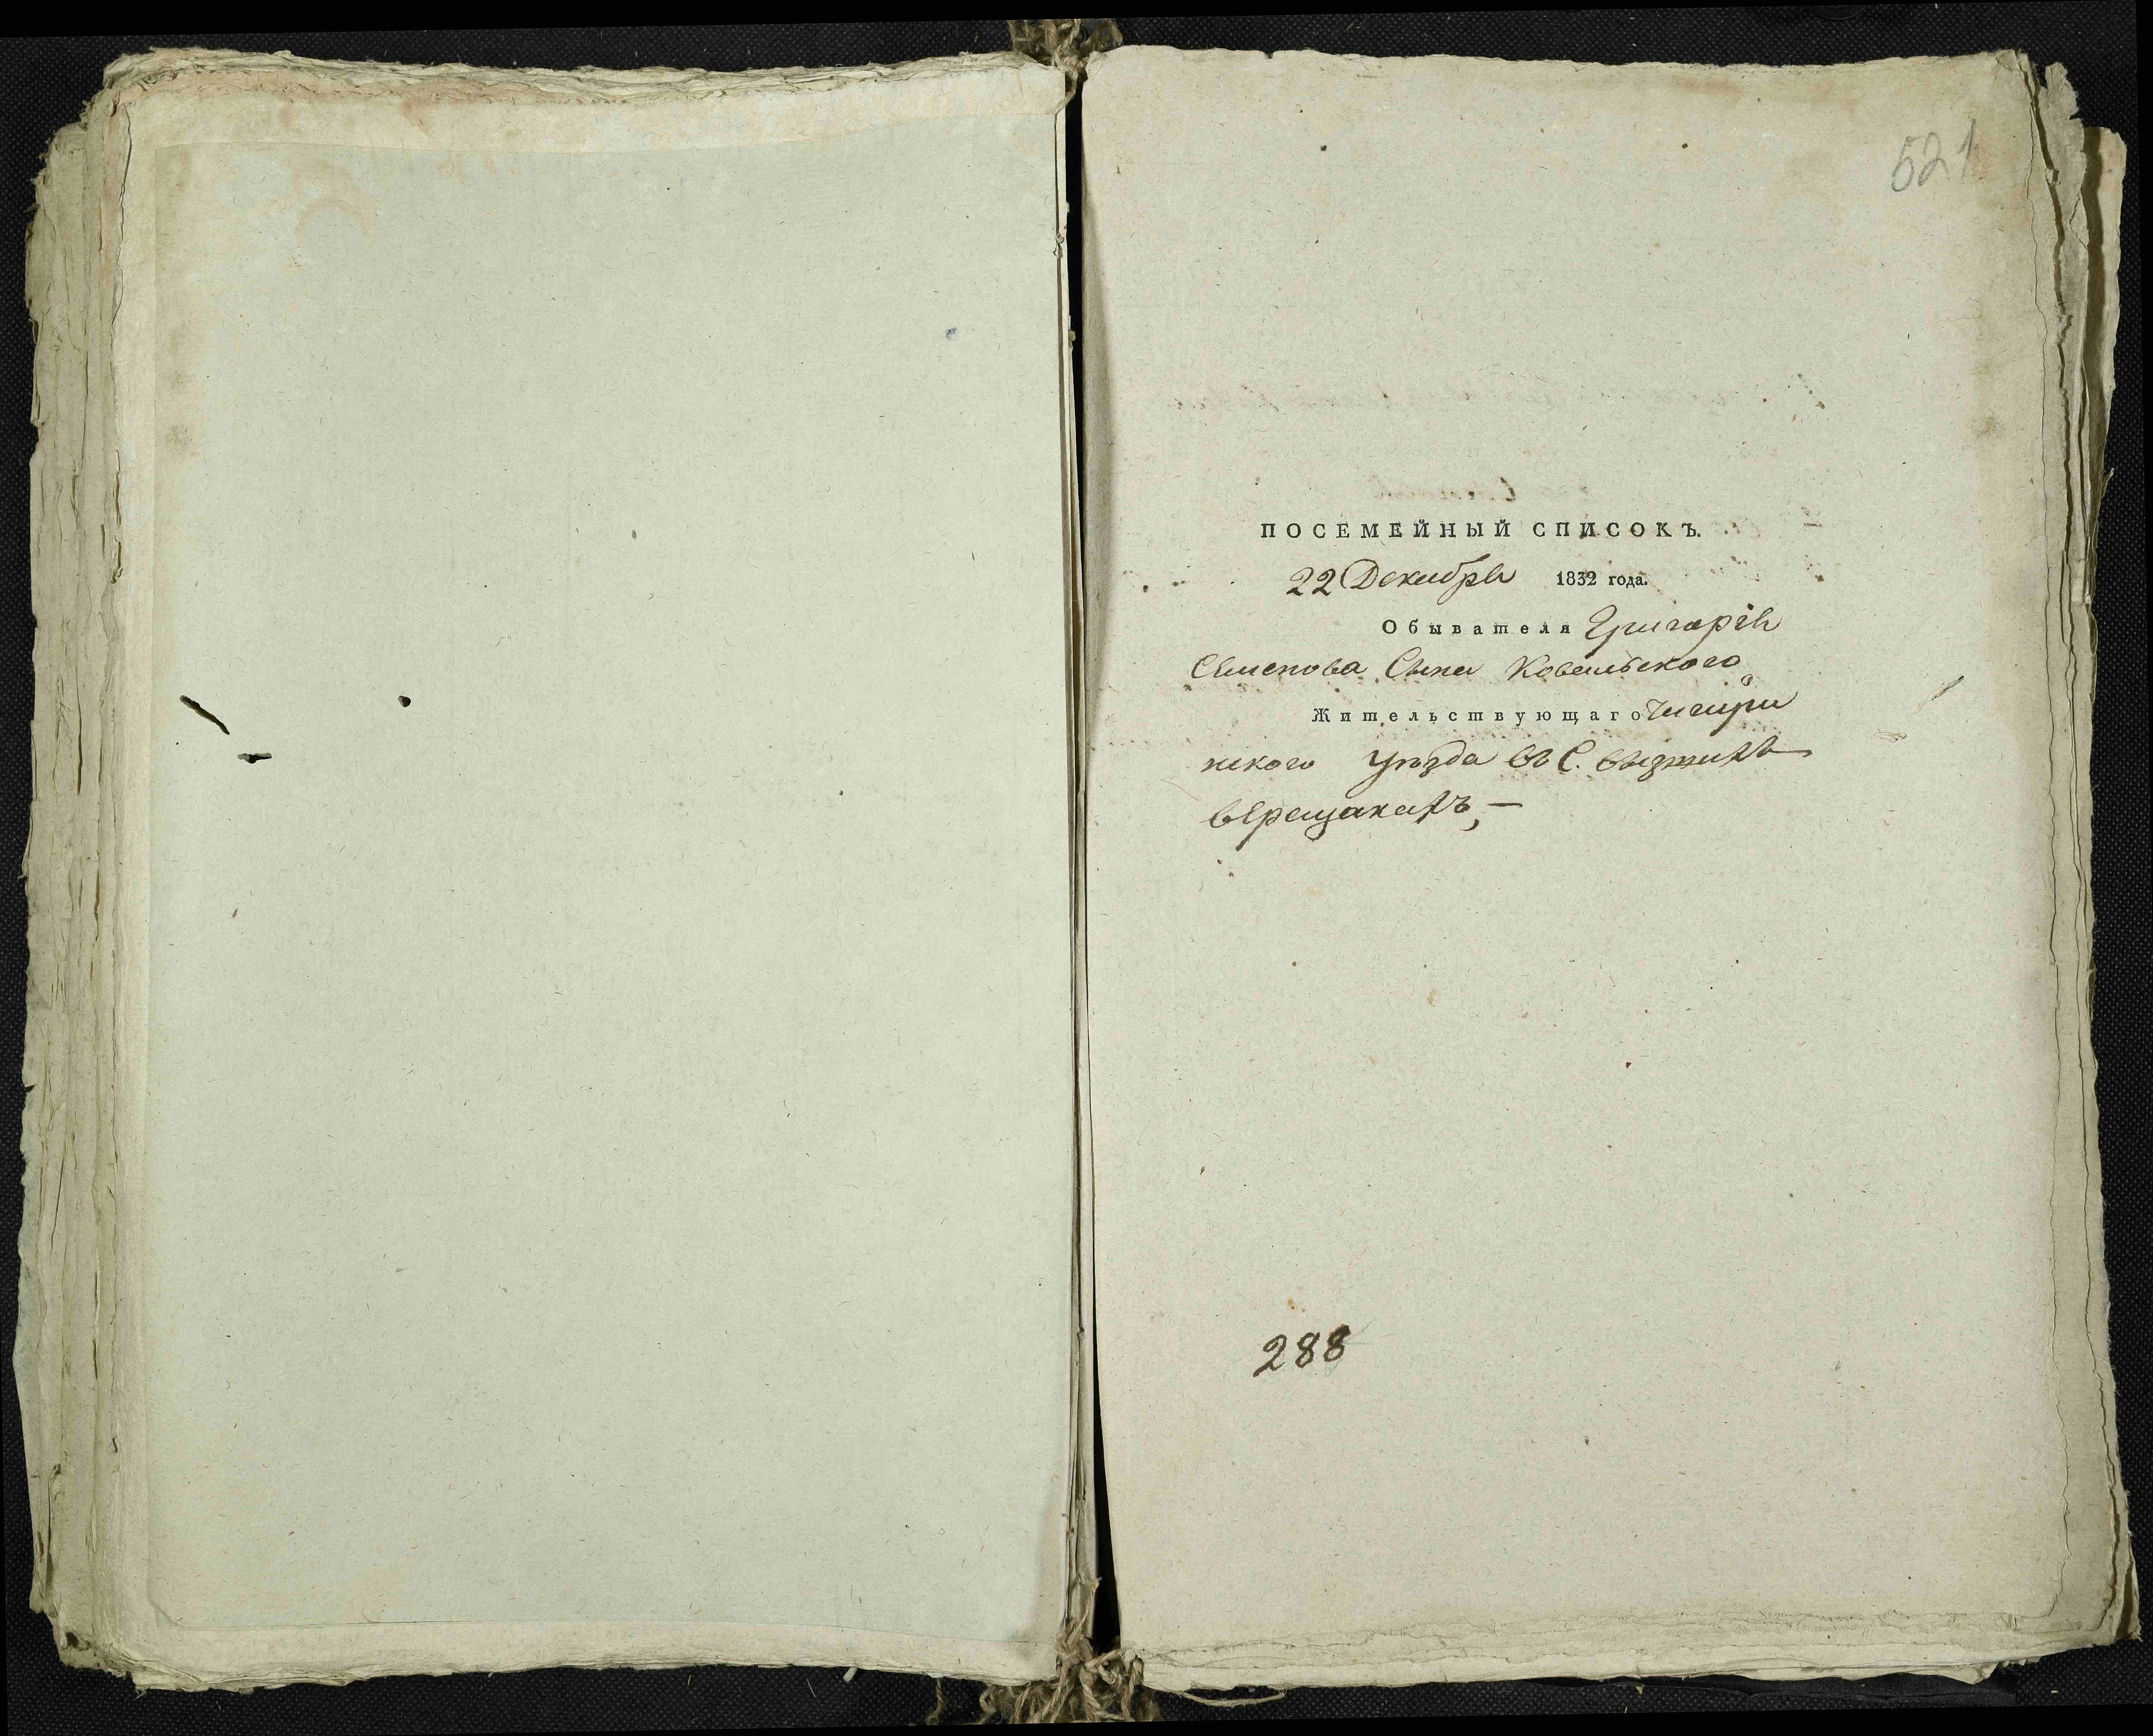 521
ПОСЕМЕЙНЫЙ СПИСОКЪ.
22 Декабря 1832 года.
Обывателя Григорія
Семенова Сына Ковальского
Жительствующаго Чигири
нского уѣзда въ С.
верещакахъ,—
288